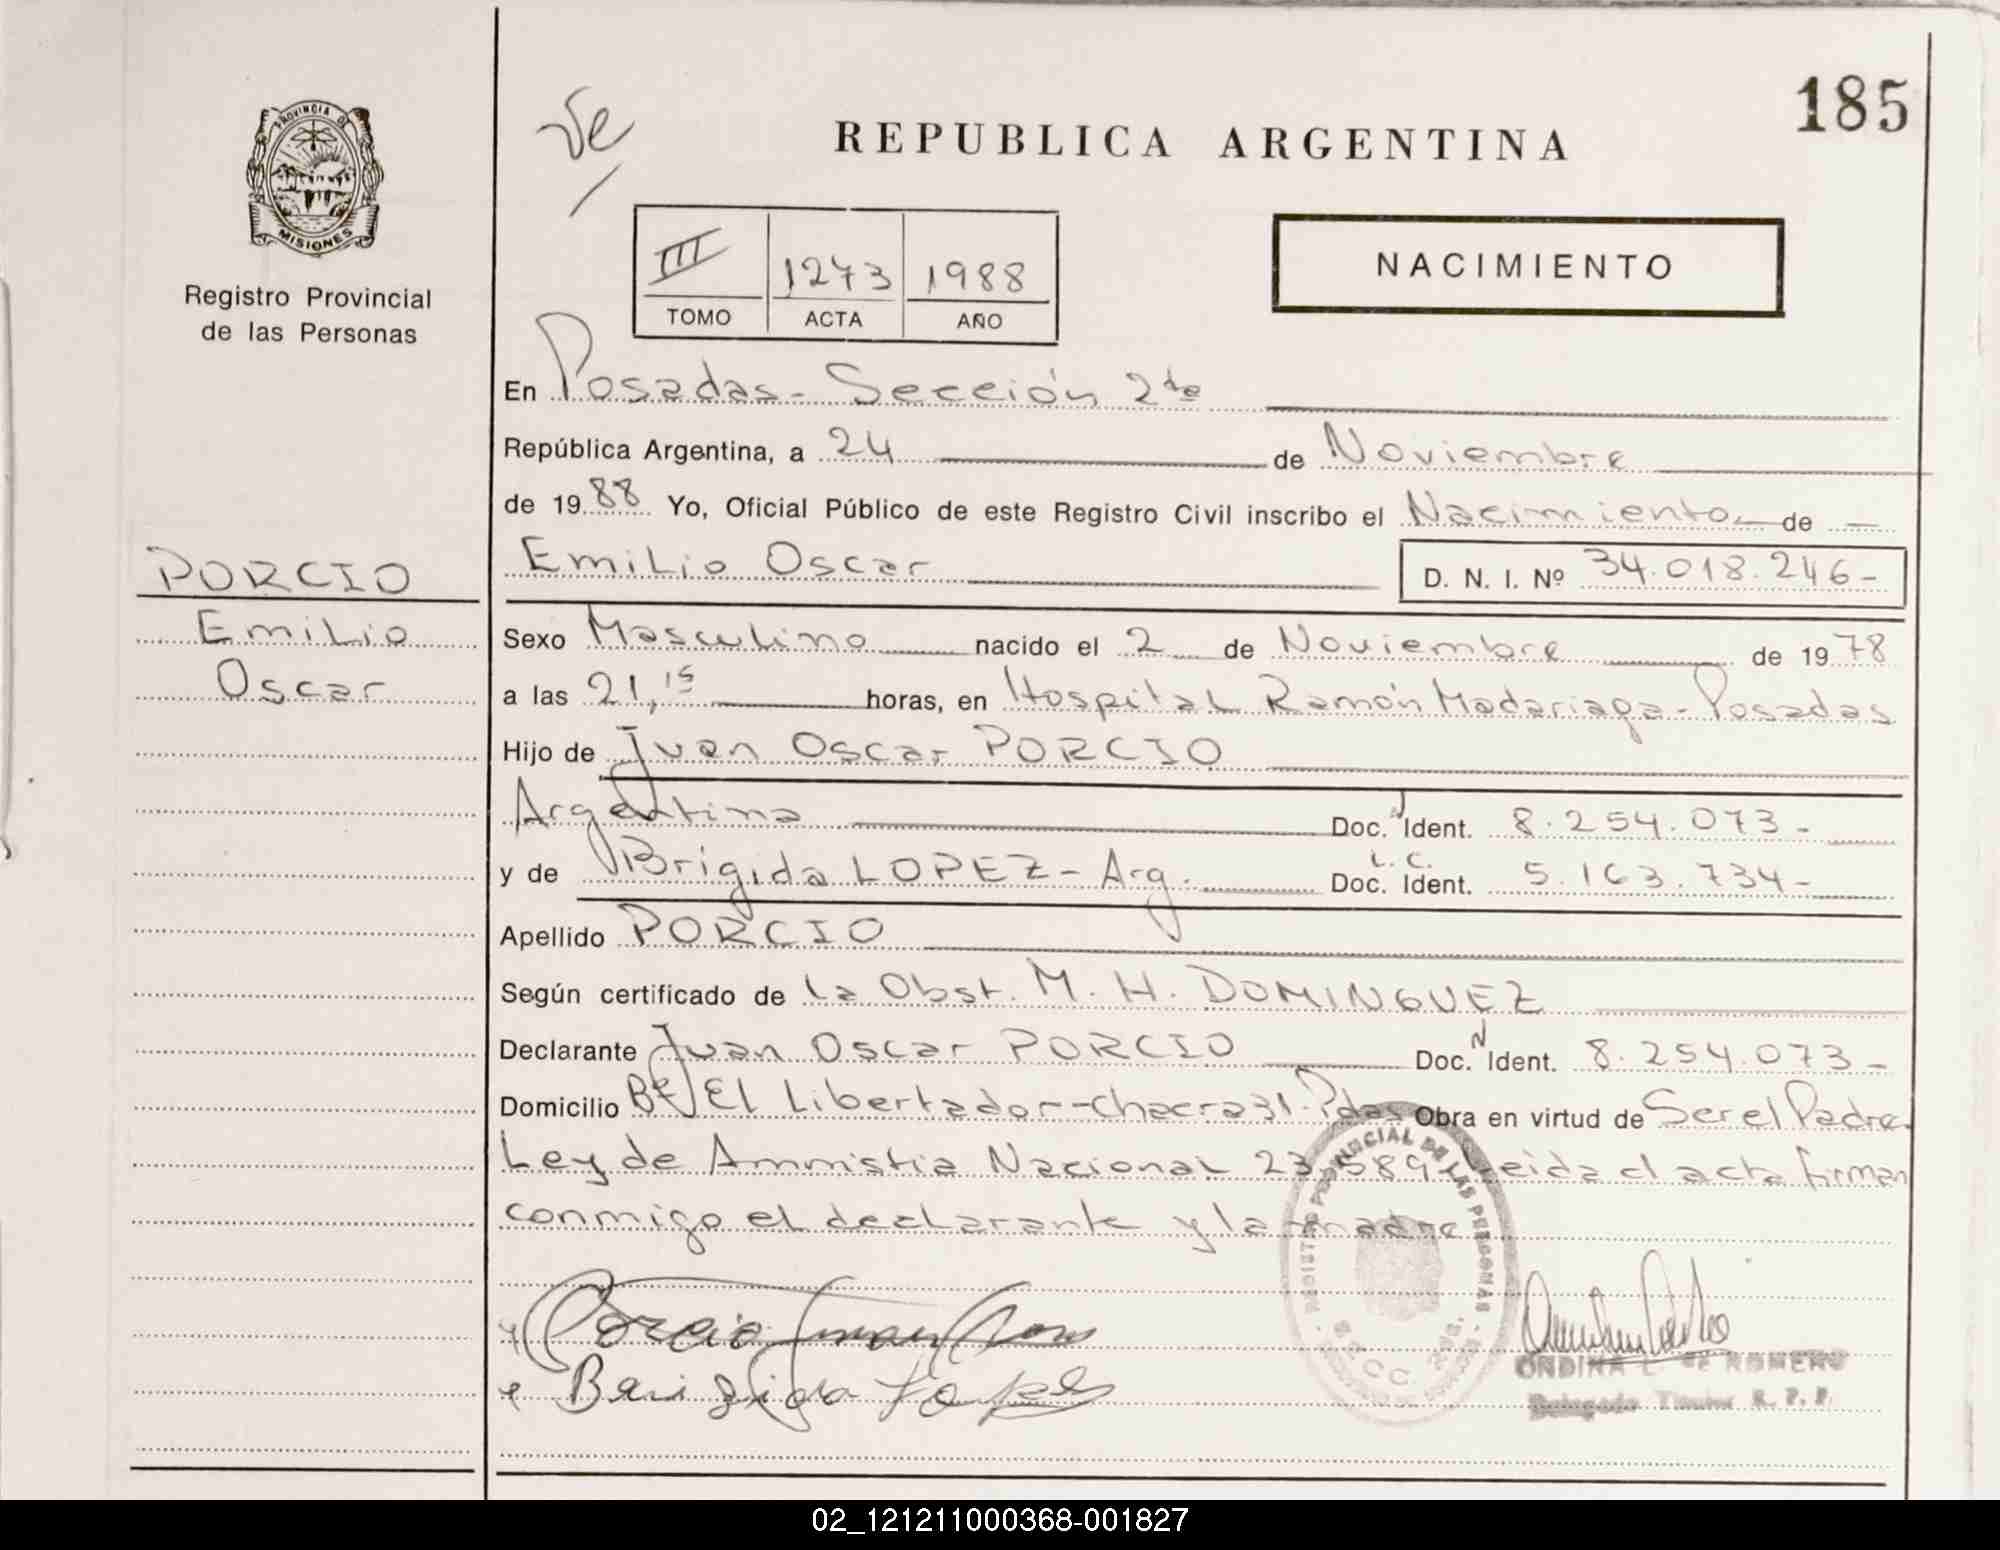 185
Ve
REPUBLICA ARGENTINA
PROVINCIA DE
MISIONES
Registro Provincial
de las Personas
III 1273 1988
TOMO ACTA AÑO
NACIMIENTO
En Posadas - Sección 2da
República Argentina, a 24 de Noviembre
de 1988 Yo, Oficial Público de este Registro Civil inscribo el Nacimiento de
PORCIO
Emilio
Oscar
Emilio Oscar D. N. I. Nº 34.018.246-
Sexo Masculino nacido el 2 de Noviembre de 1978
a las 21,15 horas, en Hospital Ramón Madariaga - Posadas
Hijo de Juan Oscar PORCIO
Argentina Doc. Ident. 8.254.073-
y de Brígida LOPEZ - Arg. L.C. Doc. Ident. 5.163.734-
Apellido PORCIO
Según certificado de la Obst. M. H. DOMINGUEZ
Declarante Juan Oscar PORCIO Doc. N Ident. 8.254.073-
Domicilio Bº El Libertador - chacra 31 - Pdas Obra en virtud de Ser el Padre.
Ley de Ammistia Nacional 23.589 Leida el acta firman
conmigo el declarante y la madre
REGISTRO PROVINCIAL DE LAS PERSONAS
Porcio Juan
Brigida Lopez
ONDINA L. de ROMERO
Delegado Titular R. P. P.
02_121211000368-001827